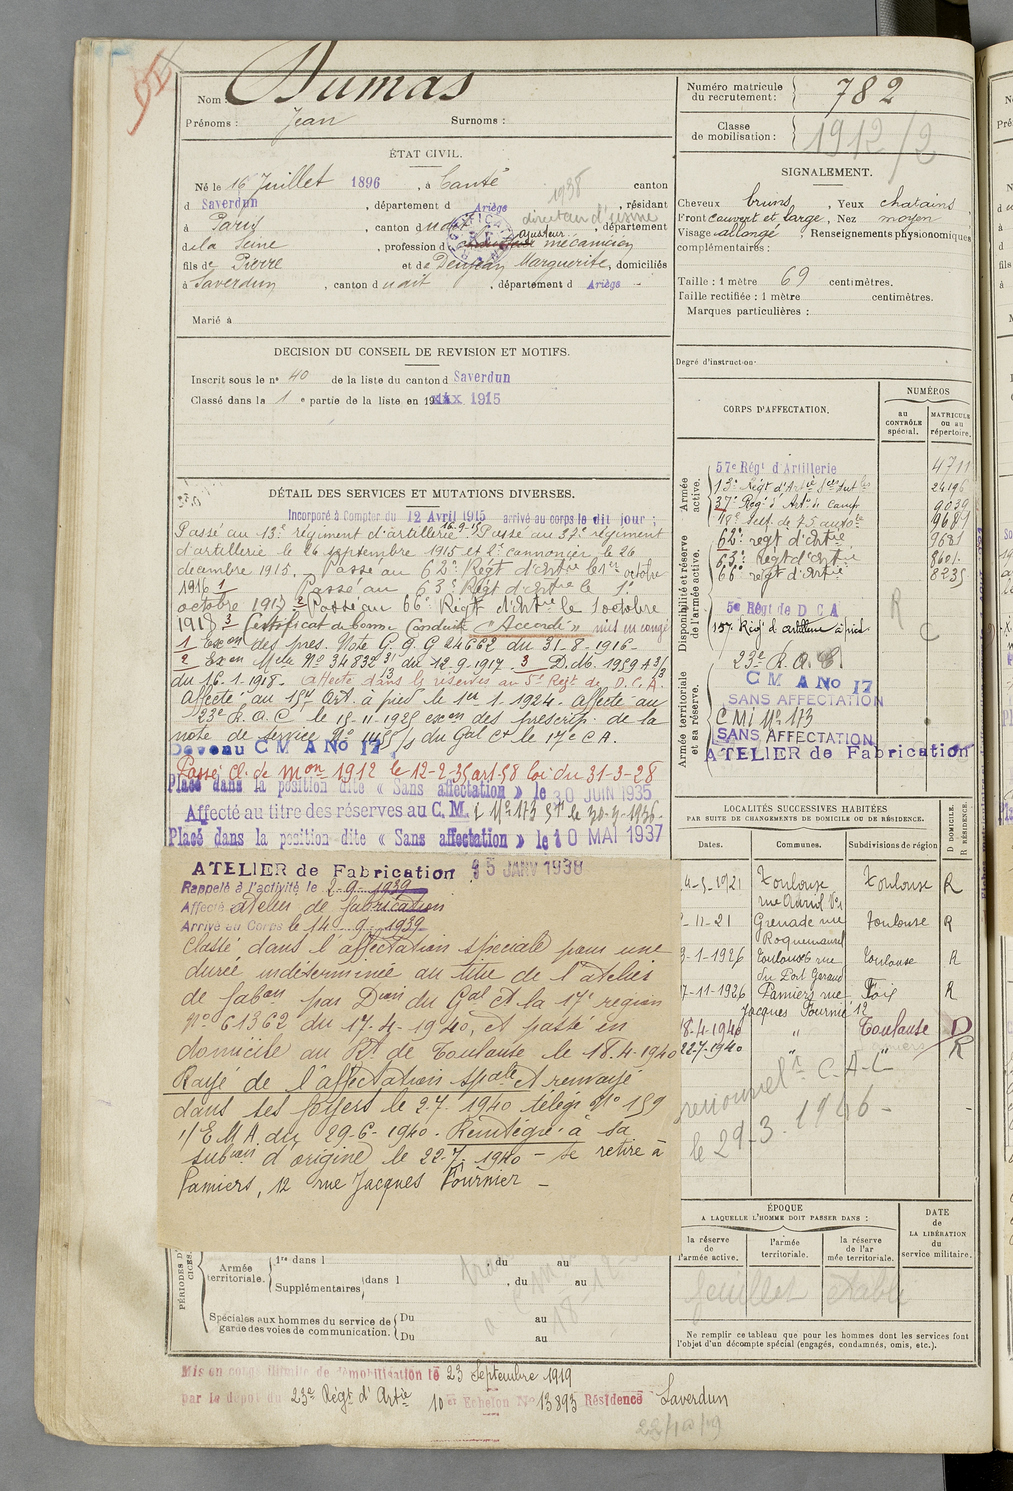 Nom : Dumas
Prénoms : Jean Surnoms :
Numéro matricule du recrutement : 782
Classe de mobilisation : 1912/2
ÉTAT CIVIL.
Né le 16 Juillet 1896, à Canté canton
d Saverdun, département d Ariège, résidant
1938 directeur d'usine
à Paris, canton dudit, département
de la Seine, profession d ajusteur mécanicien
RECTIFICATION
fils de Pierre et de Dejean Marguerite, domiciliés
à Saverdun, canton dudit, département d Ariège
Marié à
SIGNALEMENT.
Cheveux bruns, Yeux chatains
Front couvert et large, Nez moyen
Visage allongé, Renseignements physionomiques
complémentaires :
Taille : 1 mètre 69 centimètres.
Taille rectifiée : 1 mètre centimètres.
Marques particulières :
Degré d'instruction
DECISION DU CONSEIL DE REVISION ET MOTIFS.
Inscrit sous le nº 40 de la liste du canton d Saverdun
Classé dans la 1 e partie de la liste en 1915
DÉTAIL DES SERVICES ET MUTATIONS DIVERSES.
Incorporé à Compter du 12 Avril 1915 arrivé au corps le dit jour ;
Passé au 13e régiment d'artillerie 16.9.15 Passé au 37e régiment
d'artillerie le 26 septembre 1915 et 2e cannonier le 26
decembre 1915. Passé au 62e Regt d'Artrie le 1er octobre
1916 1 Passé au 63e Regt d'Artrie le 1er
octobre 1917 2 Passé au 66e Regt d'Artrie le 1 octobre
1918 3 Certificat de bonne Conduite "Accordé" mis en congé
1 Exon des pres. Note G.Q.G 24662 du 31-8-1916-
2 Exon Melle Nº 34832 31/3 du 12.9-1917. 3 D.M. 1959A 3/3
du 16.1.1918. Affecté dans les réserves au 5e Regt de D.C.A.
Affecté au 157 Art. à pied le 1er 1.1924. Affecté au
23e R.A.C. le 15-11-1925 exon des prescrip. de la
note de service du Gal Ct le 17e C A.
Devenu C M A No 17
Passé cl. de mon 1912 le 12-2-35 art 58 loi du 31-3-28
Placé dans la position dite « Sans affectation » le 30 JUIN 1935
Affecté au titre des réserves au C.M. I Nº 173
Placé dans la position dite « Sans affectation » le 10 MAI 1937
ATELIER de Fabrication 15 JANV 1938
Rappelé à l'activité le 2-9-1939
Affecté atelier de fabrication
Arrivé au Corps le 14-9-1939
Classé dans l'affectation spéciale pour une
durée indéterminée au titre de l'atelier
de fabon par Don du Gal Ct la 17e region
Nº 61362 du 17-4-1940, et passé en
domicile au Rt de Toulouse le 18.4-1940
Rayé de l'affectation spale et renvoyé
dans ses foyers le 2.7.1940 télég. Nº 159
1/E M A. du 29-6-1940. Réintégré à sa
subon d'origine le 22-7-1940 - se retire à
Pamiers, 12 rue Jacques Fournier -
CORPS D'AFFECTATION.
NUMÉROS
au CONTRÔLE spécial.
MATRICULE ou au répertoire.
Armée active.
57e Régt d'Artillerie 4711
13e Régt d'Artie 24196
37e Regt d'Art. de Camp 9039
9681
Disponibilité et réserve de l'armée active.
62e regt d'Artie 9681
63e Regt d'Artie 8601
66e regt d'Artie 8235
5e Régt de D C A
157 Régt d'artillerie à pied
R C
Armée territoriale et sa réserve.
23e R.A.C.
C M A No 17
SANS AFFECTATION
C M I Nº 173
SANS AFFECTATION
ATELIER de Fabrication
LOCALITÉS SUCCESSIVES HABITÉES
PAR SUITE DE CHANGEMENTS DE DOMICILE OU DE RÉSIDENCE.
Dates. Communes. Subdivisions de région D DOMICILE. R RÉSIDENCE.
4-5-1921 Toulouse Toulouse R
-11-21 Grenade rue Roquemaurel Toulouse R
3-1-1926 Toulouse 6 rue du Port Garaud Toulouse R
7-11-1926 Pamiers rue Jacques Fournié 12 Foix R
18-4-1940 " Toulouse D
22.7-1940 R
personnel "C.A.C"
le 29-3-1946-
ÉPOQUE
A LAQUELLE L'HOMME DOIT PASSER DANS :
la réserve de l'armée active.
l'armée territoriale.
la réserve de l'armée territoriale.
DATE de LA LIBÉRATION du service militaire.
feuillet établi
Ne remplir ce tableau que pour les hommes dont les services font l'objet d'un décompte spécial (engagés, condamnés, omis, etc.).
PÉRIODES D'
CICES.
Armée territoriale.
1re dans l du au
Supplémentaires dans l, du au
Spéciales aux hommes du service de garde des voies de communication.
Du au
Du au
Mis en congé illimité de démobilisation le 23 Septembre 1919
par le dépôt du 23e Régt d'Artie 10e Echelon No 13893 Résidence Saverdun
22/10/19